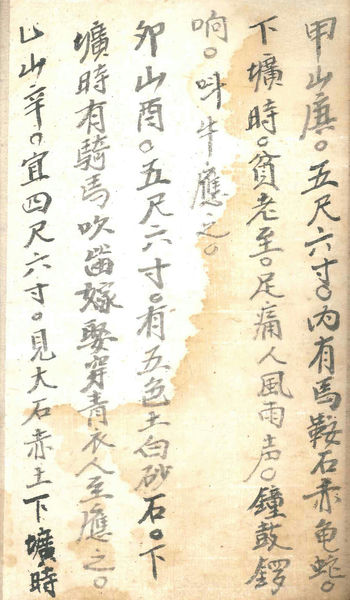 甲山庚。五尺六寸。内有馬鞍石赤龟蛇。
下壙時。貧老至。足痛人風雨声。鐘鼓鑼
响。呌牛應之。
夘山酉。五尺六寸。有五色土白砂石。下
壙時有騎馬吹笛嫁娶穿青衣人至應之。
山辛。宜四尺六寸。見大石赤土下壙時